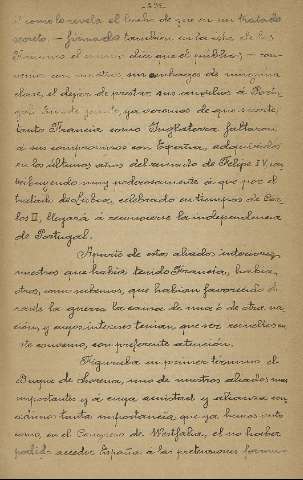 como lo revela el hecho de que en un tratado
secreto. - firmado tambien en la isla de los
Faisanes el mismo dia que el público; - con-
venia con nosotros, sin embargo de ninguna
clase, el dejar de prestar sus auxilios á Portu-
gal. Sin de frente, ya veremos de que suerte,
tanto Francia como Inglaterra faltaron
á sus compromisos con España, adquiridos
en los últimos años del reinado de Felipe IV, con-
tribuyendo muy poderosamente á que por el
tratado de Lisboa, celebrado en tiempos de Car-
los II, llegará á reconocerse la independencia
de Portugal.
Aparte de estos aliados
nuestros que habia tenido Francia, habia
otros, como sabemos, que habian favorecido du-
rante la guerra la causa de una ó de otra na-
cion, y cuyos intereses tenian que ser resueltos en
este convenio, con preferente atención.
Figuraba en primer término el
Duque de Lorena, uno de nuestros aliados mas
importantes y á cuya amistad y alianza con-
cedimos tanta importancia, que ya hemos visto
como, en el Congreso de Westfalia, el no haber
podido acceder España á las pretensiones